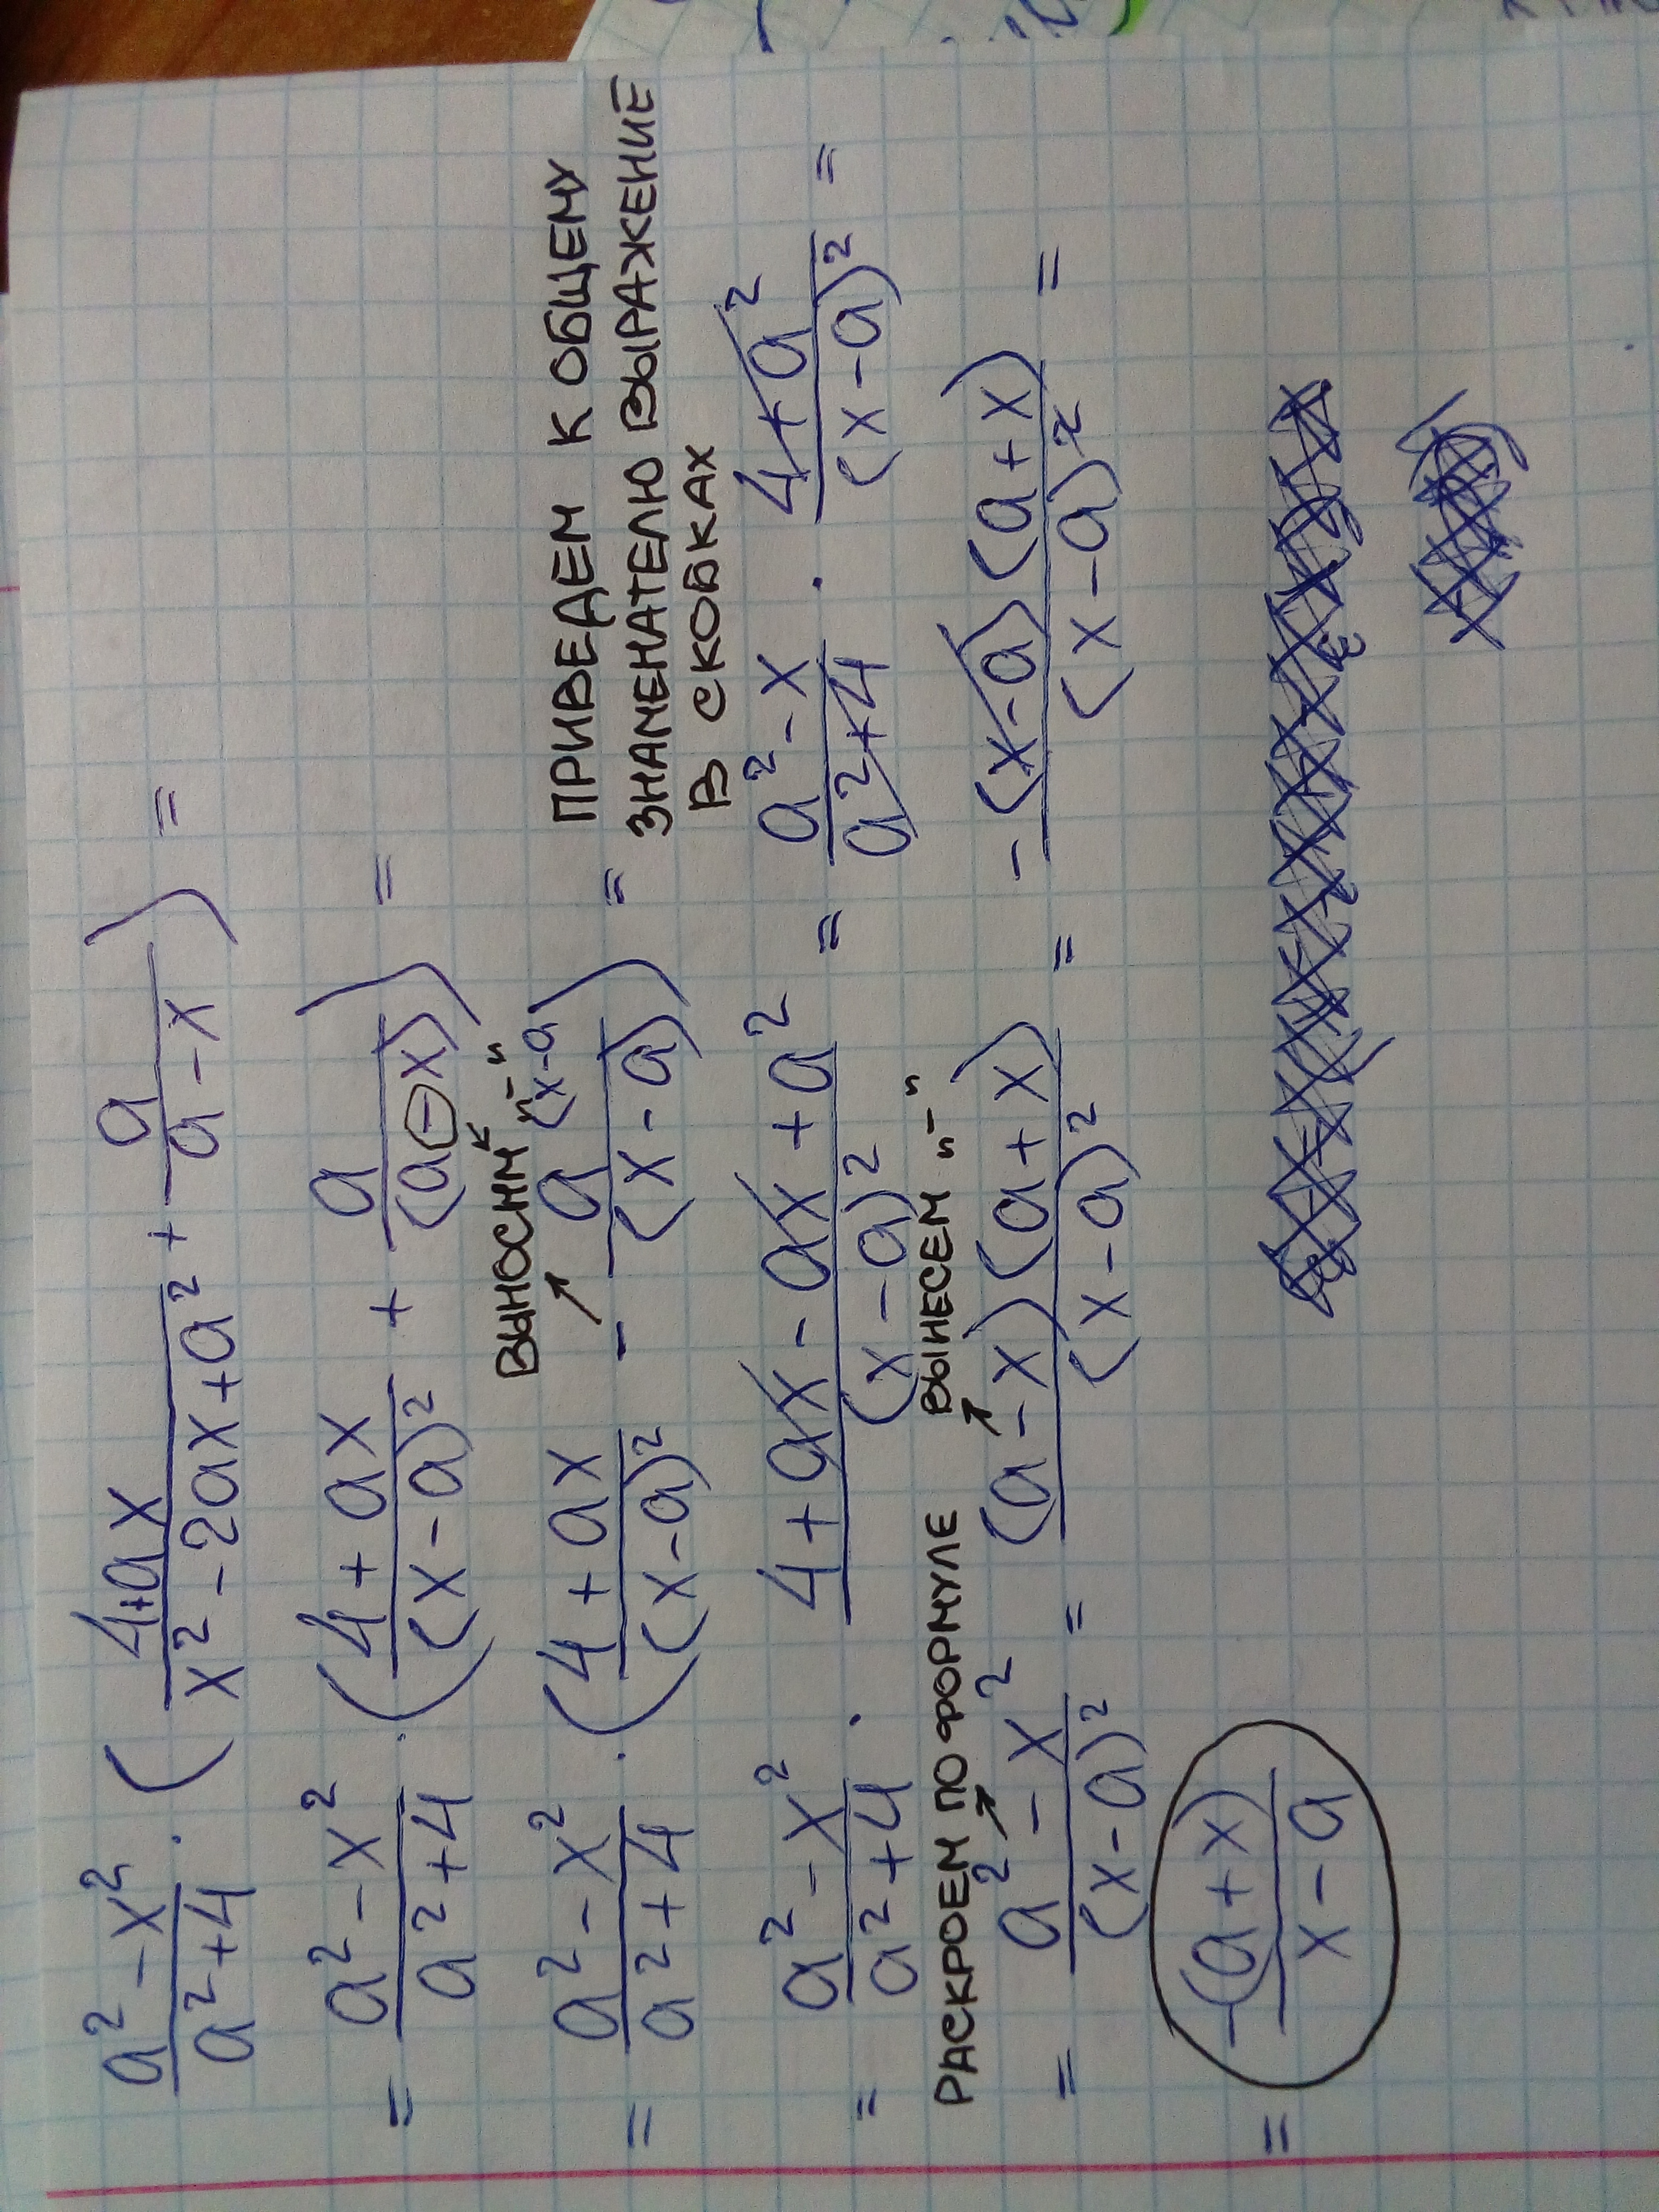 (a² - x²)/(a² + 4) · ((4+ax)/(x² - 2ax + a²) + a/(a - x)) =
= (a² - x²)/(a² + 4) · ((4 + ax)/(x - a)² + a/(a - x)) =
ВЫНОСИМ "-"
= (a² - x²)/(a² + 4) · ((4 + ax)/(x - a)² - a (x-a)/(x - a)) =
ПРИВЕДЕМ К ОБЩЕМУ
ЗНАМЕНАТЕЛЮ ВЫРАЖЕНИЕ
В СКОБКАХ
= (a² - x²)/(a² + 4) · (4 + ax - ax + a²)/(x - a)² = (a² - x)/(a² + 4) · (4 + a²)/(x - a)² =
РАСКРОЕМ ПО ФОРМУЛЕ ВЫНЕСЕМ "-"
= (a² - x²)/(x - a)² = (a - x)(a + x)/(x - a)² = -(x - a)(a + x)/(x - a)² =
= -(a + x)/(x - a)